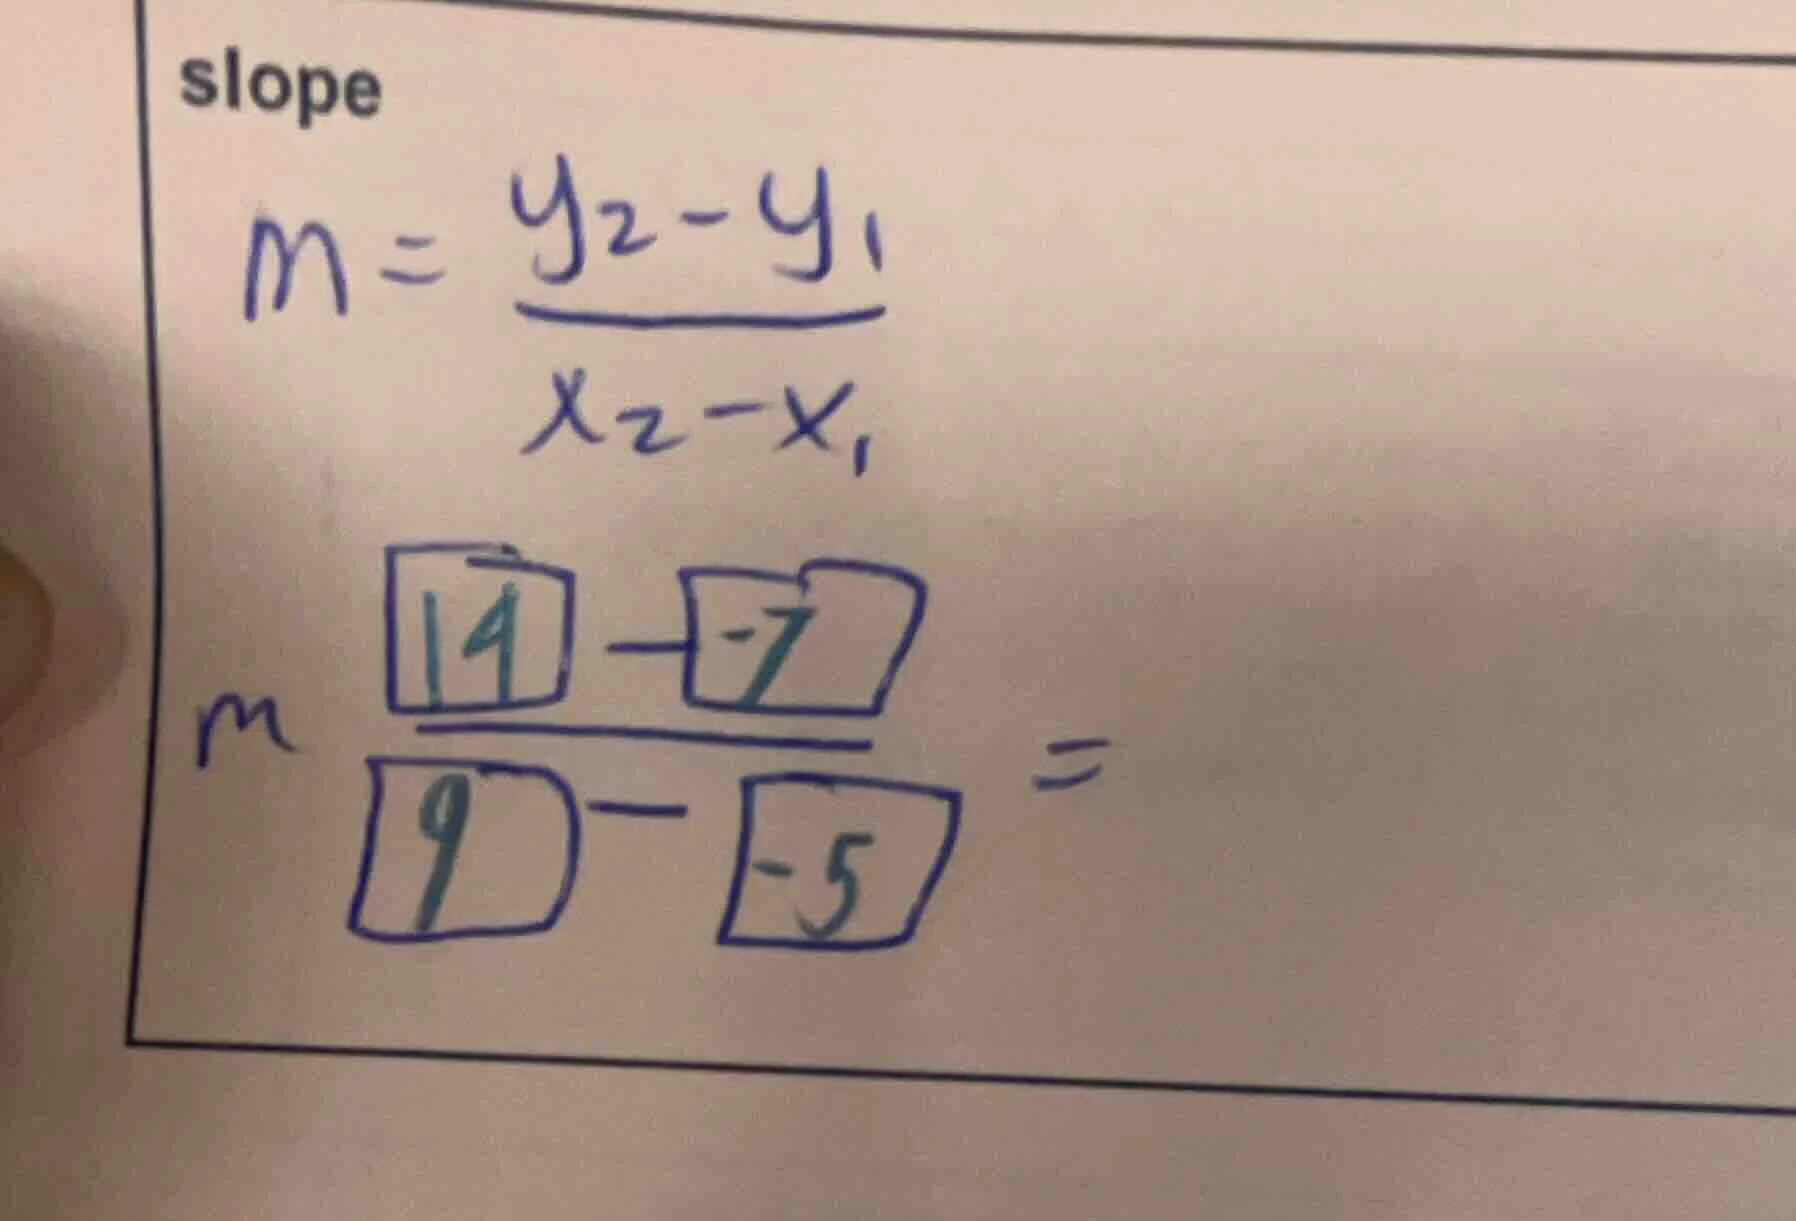 slope
m = y₂ - y₁
x₂ - x₁
m 14 - -7 =
9 - -5